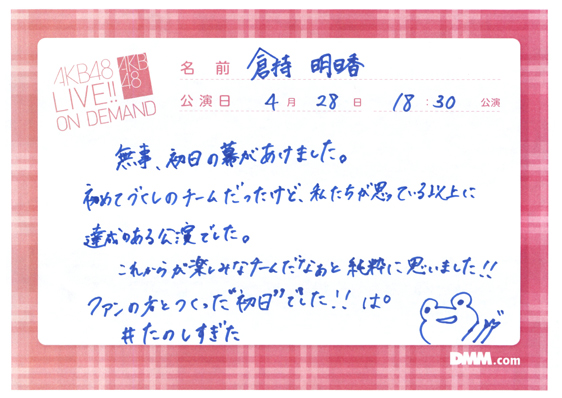 AKB48
LIVE!!
ON DEMAND
AKB
48
名 前 倉持 明日香
公演日 4 月 28 日 18 : 30 公演
無事、初日の幕があけました。
初めてづくしのチームだったけど、私たちが思っている以上に
達成のある公演でした。
これからが楽しみなチームだなぁと純粋に思いました!!
ファンの方とつくった"初日"でした!! は。
#たのしすぎた
DMM.com